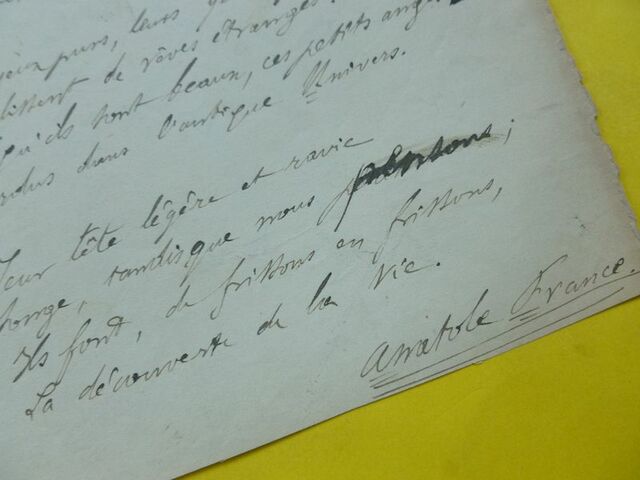 purs, leurs
de rêves étranges
qu'ils sont beaux, ces petits anges
dus dans l'antique Univers.
Leur tête légère et ravie
songe, tandis que nous pensons;
Ils font, de frissons en frissons,
La découverte de la vie.
Anatole France.